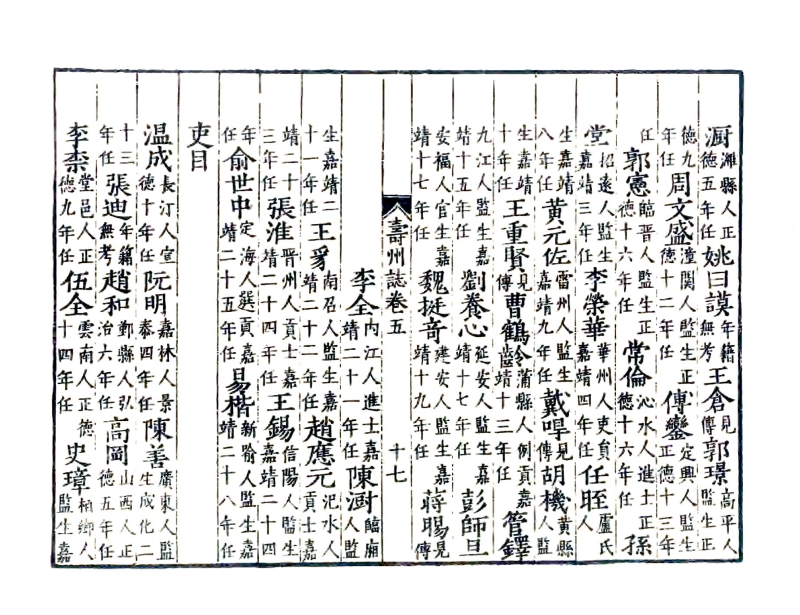 㕑濰縣人正德五年任姚曰謨年籍無考王倉見傳郭璟高平人監生正
德九年任周文盛潼關人監生正德十二年任傅鑾定興人監生正德十三年
任郭憲臨晉人監生正德十六年任常倫沁水人進士正德十六年任孫
堂招遠人監生嘉靖三年任李榮華華州人吏員嘉靖四年任任眰盧氏人
監生嘉靖八年任黃元佐雷州人監生嘉靖九年任戴㖓見傳胡機黃縣人監
生嘉靖十年任王重賢見傳曹鶴齡蒲縣人例貢嘉靖十三年任管鐸
九江人監生嘉靖十五年任劉養心延安人監生嘉靖十七年任彭師旦
安福人官生嘉靖十七年任魏挺奇建安人監生嘉靖十九年任蔣暘見傳
壽州誌卷五 十七
李全內江人進士嘉靖二十一年任陳㕑臨廂人監
生嘉靖二十一年任王豸南召人監生嘉靖二十二年任趙應元汜水人貢士嘉
靖二十三年任張淮晉州人貢士嘉靖二十四年任王錫信陽人監生嘉靖二十四
年任俞世中定海人選貢嘉靖二十五年任易楷新喻人監生嘉靖二十八年任
吏目
温成長汀人宣德十年任阮明嘉林人景泰四年任陳善廣東人監生成化二
十三年任張迪年籍無考趙和鄞縣人弘治六年任高岡山西人正德五年任
李柰堂邑人正德九年任伍全雲南人正德十四年任史璋柏鄉人監生嘉